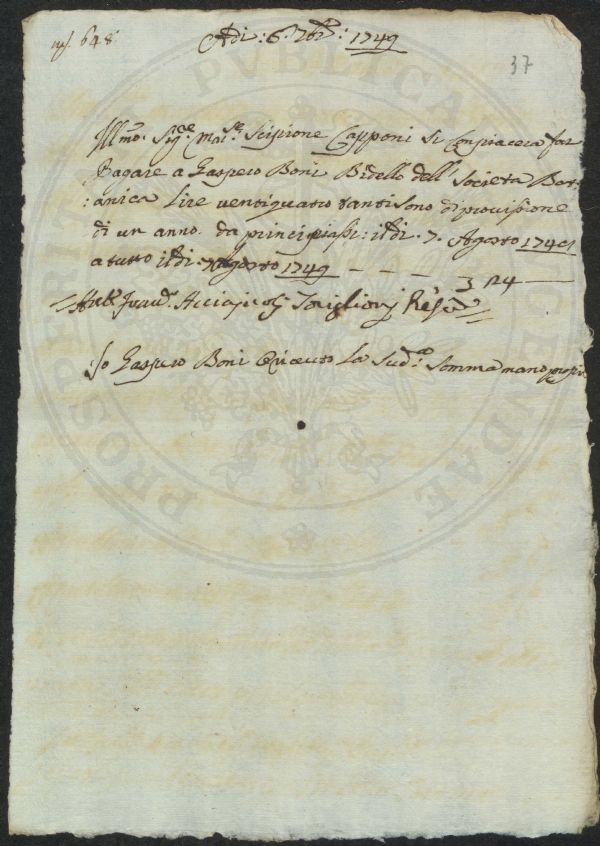 648
Adi: 6: 7bre: 1749
37
Illmo. Sige. Marse. Scipione Capponi si Compiacera far
Pagare a Gaspero Boni Bidello dell' Società Bot:
:anica Lire ventiquatro tanti sono di provissione
di un anno da principiassi: il di 7. Agosto
a tutto il di 7 Agosto 1749 - - - 24 -
Acciajoli
Io Gaspero Boni O riceuto La Sudа. Somma mano propria
PUBLICAE
PROSPERITATI